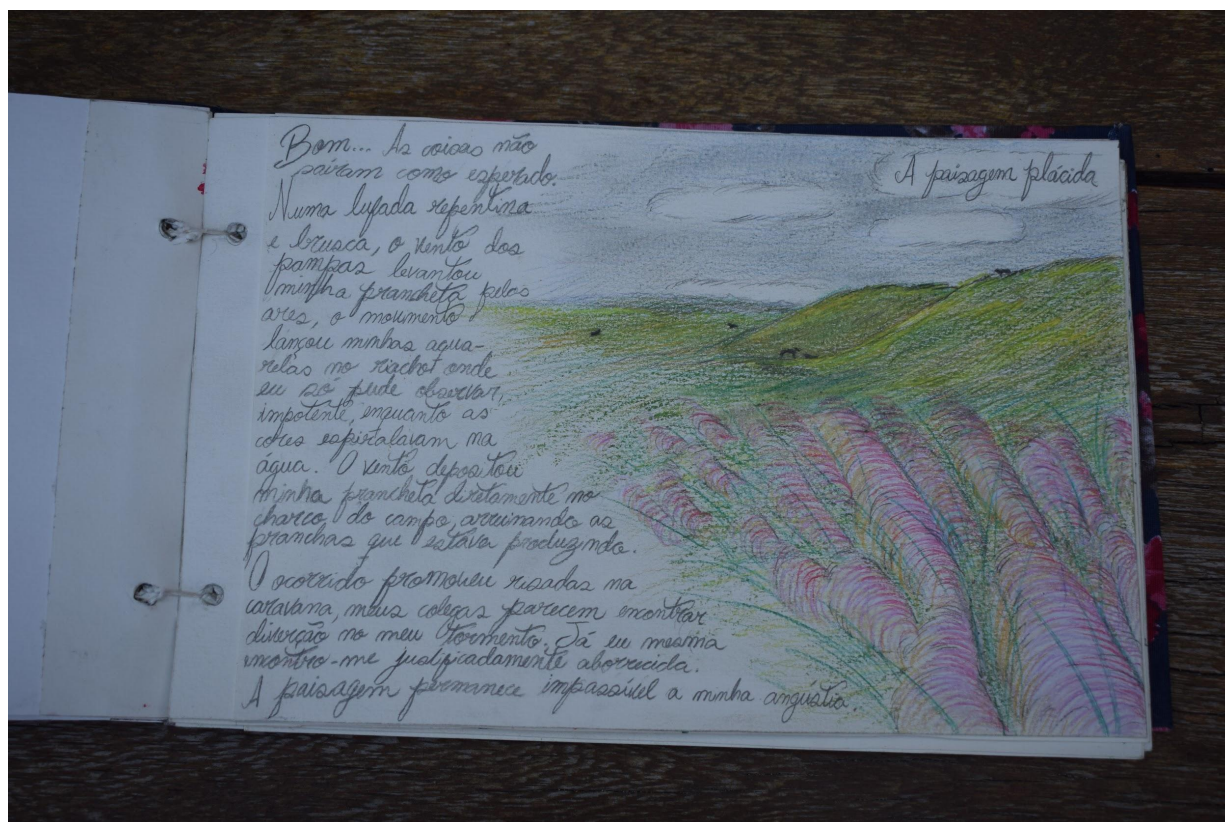 Bom... As coisas não
sairam como esperado.
Numa lufada repentina
e brusca, o vento dos
pampas levantou
minha prancheta pelos
ares, o movimento
lançou minhas aqua-
relas no riacho onde
eu só pude observar,
impotente, enquanto as
cores espiralavam na
água. O vento depositou
minha prancheta diretamente no
charco do campo, arruinando as
pranchas que estava produzindo.
O ocorrido promoveu risadas na
caravana, meus colegas parecem encontrar
diverção no meu tormento. Já eu mesma
encontro-me justificadamente aborrecida.
A paisagem permanece impassível a minha angústia.
A paisagem plácida